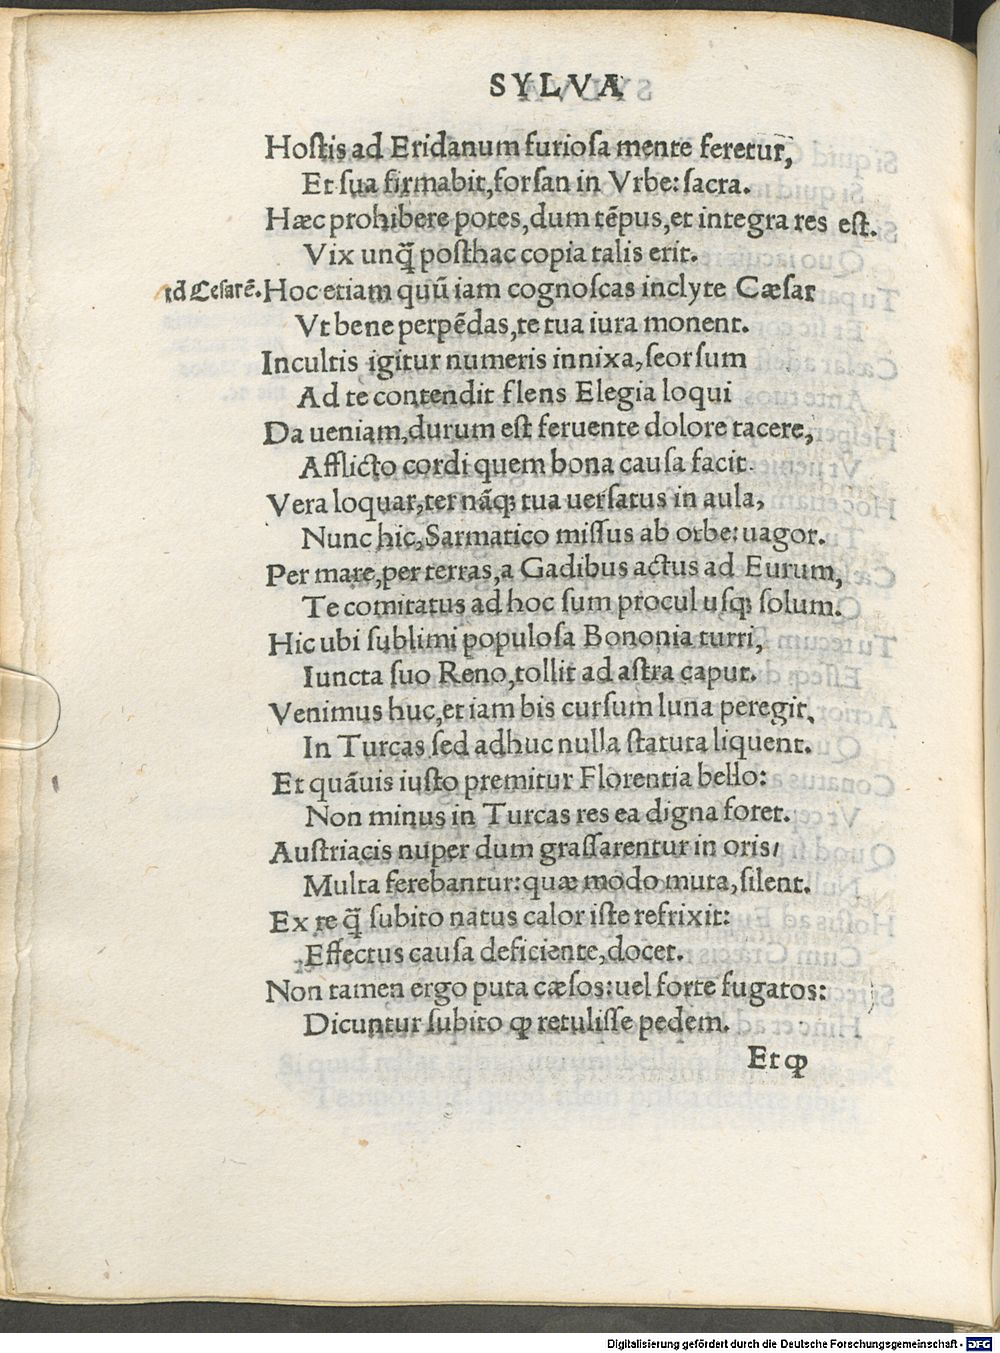 SYLVA
Hostis ad Eridanum furiosa mente feretur,
Et sua firmabit, forsan in Vrbe: sacra.
Hæc prohibere potes, dum tẽpus, et integra res est.
Vix unq̃ posthac copia talis erit.
ad Cesarẽ. Hoc etiam quũ iam cognoscas inclyte Cæsar
Vt bene perpẽdas, te tua iura monent.
Incultis igitur numeris innixa, seorsum
Ad te contendit flens Elegia loqui
Da ueniam, durum est feruente dolore tacere,
Afflicto cordi quem bona causa facit.
Vera loquar, ter nãq; tua uersatus in aula,
Nunc hic, Sarmatico missus ab orbe: uagor.
Per mare, per terras, a Gadibus actus ad Eurum,
Te comitatus ad hoc sum procul usq; solum.
Hic ubi sublimi populosa Bononia turri,
Iuncta suo Reno, tollit ad astra caput.
Venimus huc, et iam bis cursum luna peregit,
In Turcas sed adhuc nulla statuta liquent.
Et quãuis iusto premitur Florentia bello:
Non minus in Turcas res ea digna foret.
Austriacis nuper dum grassarentur in oris/
Multa ferebantur: quæ modo muta, silent.
Ex re q̃ subito natus calor iste refrixit:
Effectus causa deficiente, docet.
Non tamen ergo puta cæsos: uel forte fugatos:
Dicuntur subito ꝙ retulisse pedem.
Et ꝙ
Digitalisierung gefördert durch die Deutsche Forschungsgemeinschaft - DFG